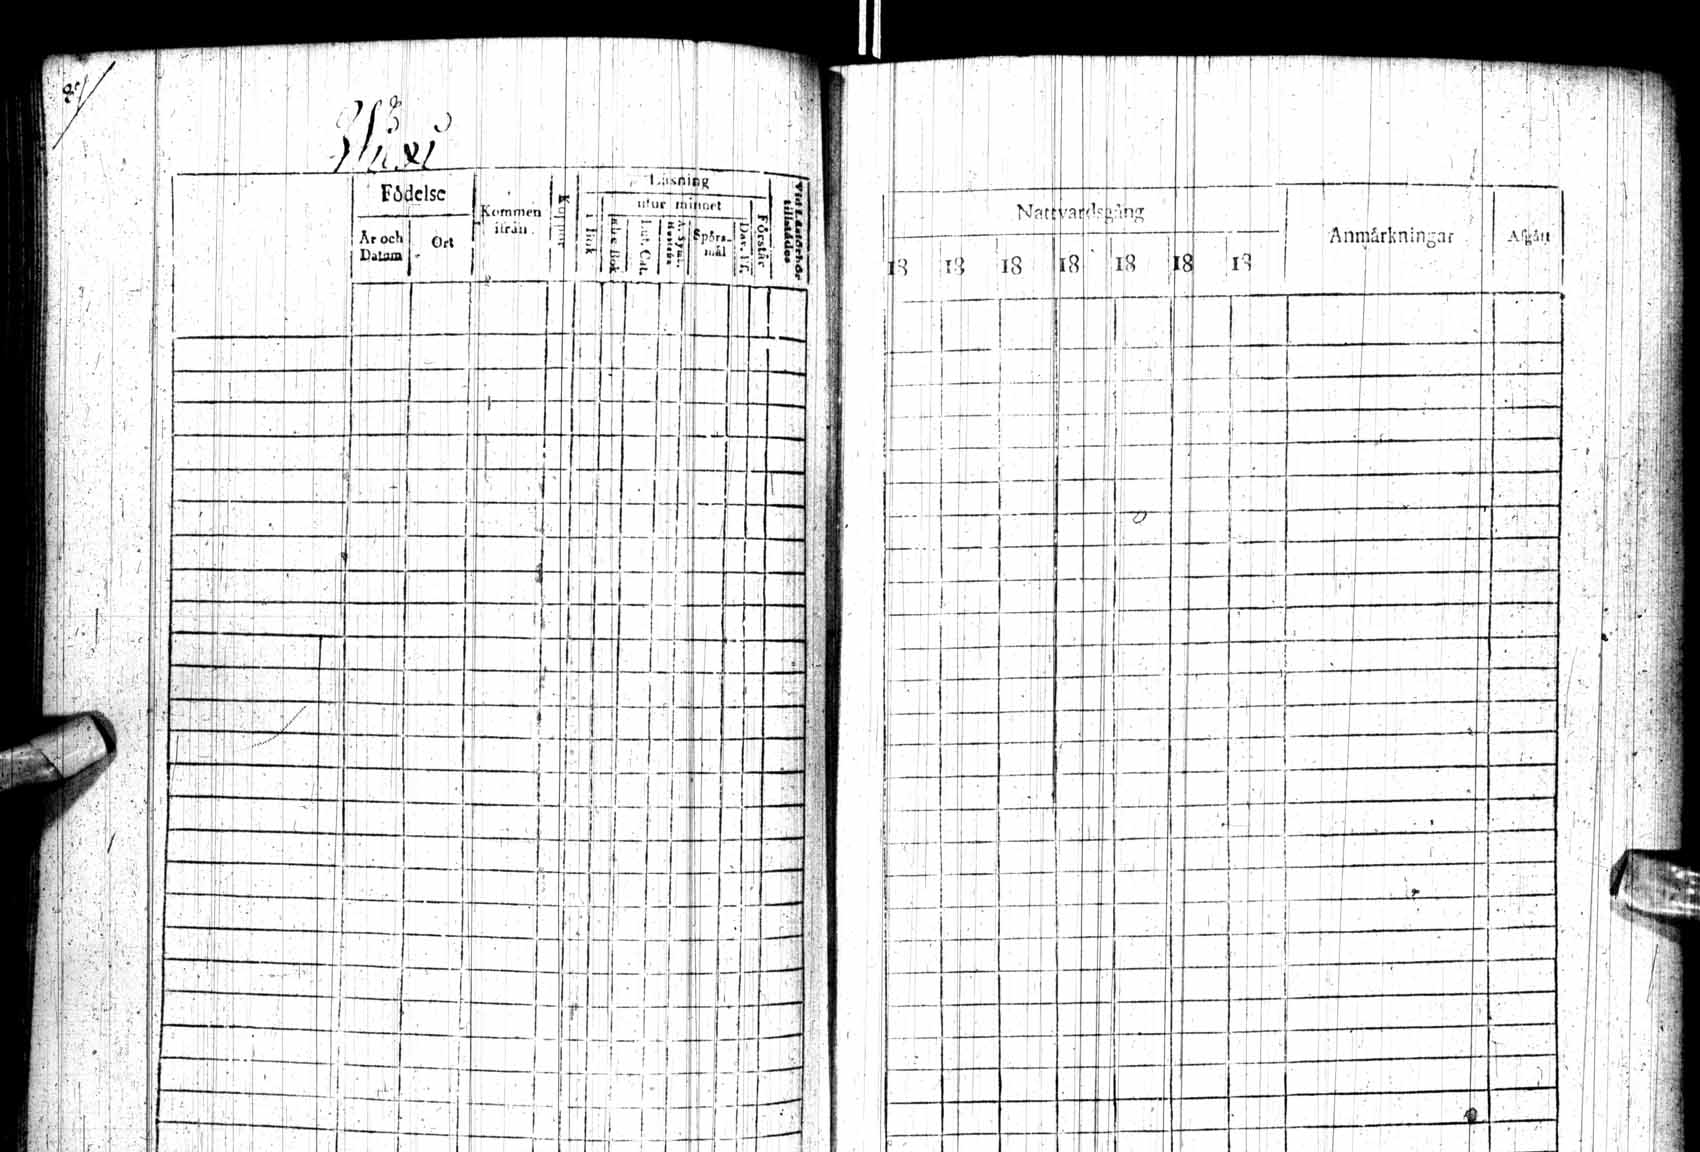 Födelse
År och Datum
Ort
Kommen ifrån
Koppor
Läsning
i Bok
utur minnet
Abc Bok
Lut. Cat.
A. Symb.
Spörs-mål
Dav. Ps.
Förstår
Vid Läsförhör tillstädes
Nattvardsgång
18 18 18 18 18 18 18
Anmärkningar
Afgått